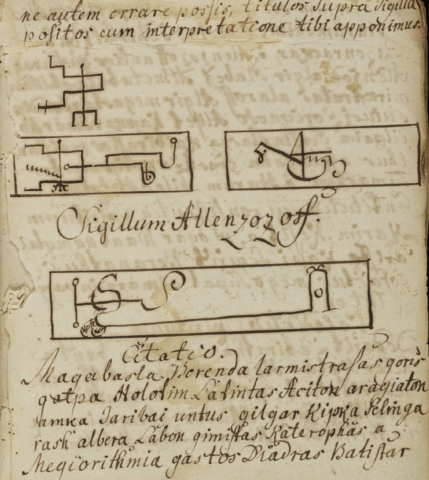 ne autem errare possis, titulos supra Sigilla
positos cum interpretatione tibi apponimus.
Sigillum Allenzozoff.
Citatio.
Magabasla Berenda larmistrasas goris
gatpa Hololim Lalintas Aciton aragiaton
Iaribai untus gilgar Kipka Selinga
rash albera Labon gimistas Katerophas a
Meqiorithmia gastos Diadras Batistar